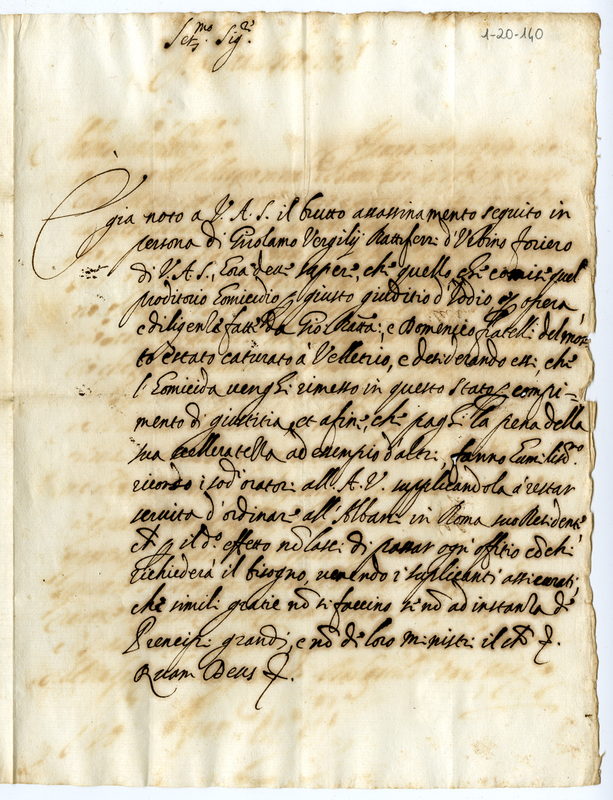 Ser.mo Sig.re
1-20-140
È già noto a V. A. S. il brutto assassinamento seguito in
persona di Girolamo Vergilij d'Urbino foriero
di V. A. S., Hora deve sapere, che quello che comise quel
proditorio Homicidio giusto giuditio d'Iddio et opera
e diligenza fatta da Gio: Batta: e Domenico fratelli del mor=
to è stato caturato à Velletrio, e desiderando essi, che
l'Homicida venghi rimesso in questo stato compi=
mento di giustitia, et afine, che paghi la pena della
sua scelleratezza ad esempio d'altri, fanno humiliss.o
ricordo i sod.i oratori all'A. V. supplicandola à restar
servita d'ordinare all'Albani in Roma suo Residente
che p il d.o effetto nõ lasci di passar ogn'offitio cõ chi
richiederà il bisogno, venendo i suplicanti assicurati,
che simili gratie nõ si faccino se nõ ad instanza de
Prencipi grandi, e nõ de loro ministri il che
Quam Deus